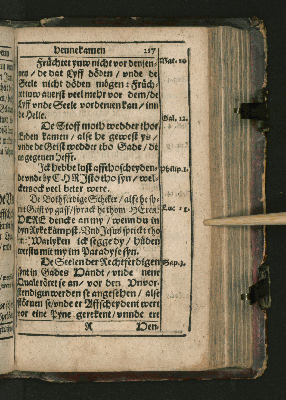 vennekamen 217
Früchtet yuw nicht vor den jen-
nen / de dat Lyff döden / vnde de
Seele nicht döden mögen: Früch-
tet vell mehr vor dem / de
Lyff vnde Seele vorderuen kan / inn
de Helle.
Mat. 10.
De Stoff moth wedder thor
Erden kamen / alse he gewest ys /
vnde de Geist wedder tho Gade / de
en gegeuen hefft.
Ick hebbe lust affthoscheyden
vnde by CHRISto tho syn / wel-
ckes ock veel beter were.
Philip. 1.
De Bothferdige Scheker / alse he sy-
nen Geist vp gaff / sprack he thom HEren:
HERE dencke an my / wenn du in
dyn Ryke kümpst. Vnd Jesus sprack tho
em: Warlyken ick segge dy / hüden
werstu mit my im Paradyse syn.
Luc. 23.
De Seelen der Rechtferdigen
synt in Gades Handt / vnde nene
Quale röret se an / vor den Vnvor-
stendigen werden se angesehen / alse
störuen se / vnde er Affscheydent wert
vor eine Pyne gerekent / vnnde ere
Sap. 3.
R Hen-